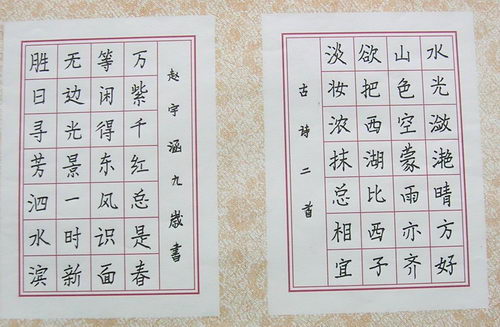 古诗二首
水光潋滟晴方好
山色空蒙雨亦齐
欲把西湖比西子
淡妆浓抹总相宜
胜日寻芳泗水滨
无边光景一时新
等闲得东风识面
万紫千红总是春
赵宇涵九歲書